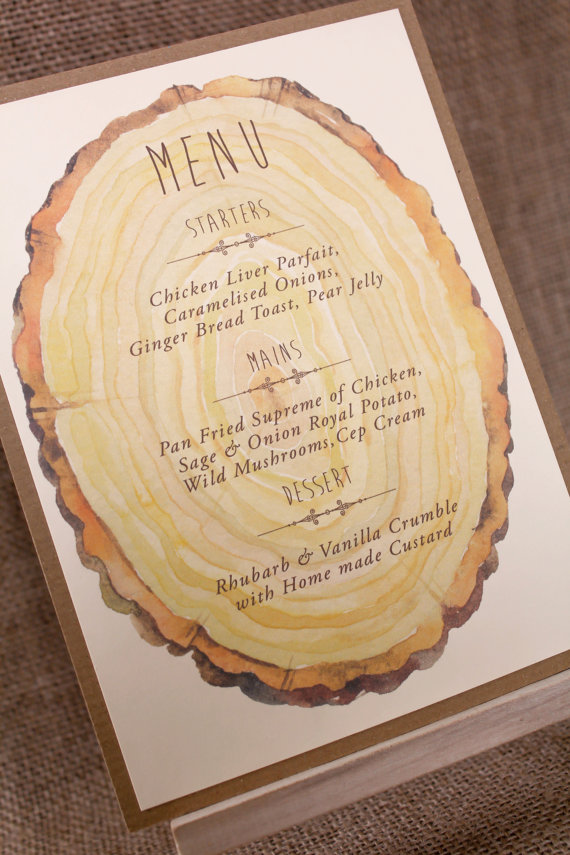 MENU
STARTERS
Chicken Liver Parfait,
Caramelised Onions,
Ginger Bread Toast, Pear Jelly
MAINS
Pan Fried Supreme of Chicken,
Sage & Onion Royal Potato,
Wild Mushrooms,Cep Cream
DESSERT
Rhubarb & Vanilla Crumble
with Home made Custard